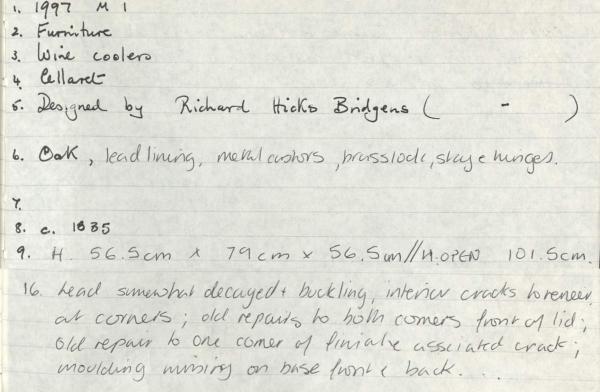 1. 1997 M 1
2. Furniture
3. Wine coolers
4. Cellaret
5. Designed by Richard Hicks Bridgens ( - )
6. Oak, lead lining, metal castors, brass lock, stay & hinges.
7.
8. c. 1835
9. H. 56.5cm x 79cm x 56.5cm//H.OPEN 101.5cm.
16. Lead somewhat decayed + buckling, interior cracks to veneer
at corners; old repairs to both corners front of lid;
old repair to one corner of finial & associated crack;
moulding missing on base front & back. . .